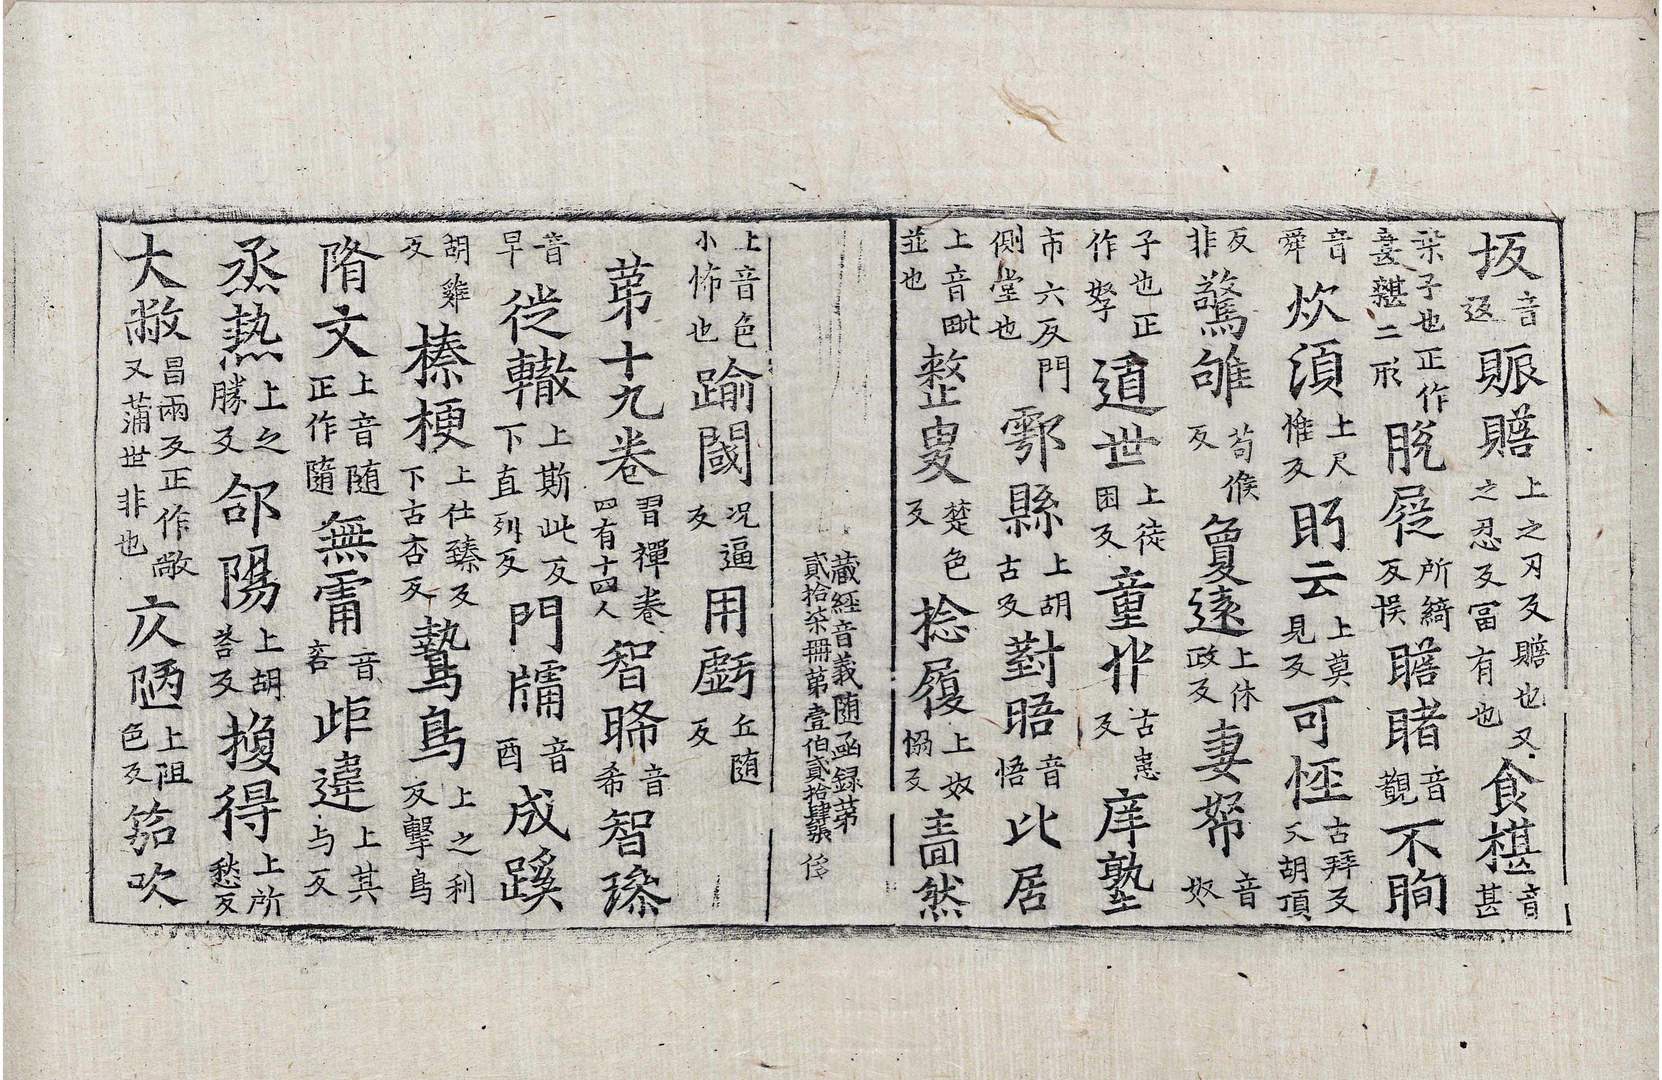 坂音返賑贍上之刃反贍也又之忍反冨有也食椹音甚
桒子也正作葚黮二形脫屣所綺反悮瞻睹音覩不眴
音舜炊須上尺惟反眄云上莫見反可恠古拜反又胡頂
反非驚雊苟候反敻遠上休政反妻帑音奴
子也正作孥道世上徒困反童丱古患反庠塾
市六反門側堂也鄠縣上胡古反對晤音悟此居
上音毗並也整㕟楚色反捻履上奴恊反畫然
藏經音義随函録第貳拾柒冊第壹伯貳拾肆張
上音色小怖也踰閾况逼反用虧丘随反
第十九卷習禪卷四有十四人智晞音希智璪
音早徙轍上斯此反下直列反門牖音酉成蹊
胡雞反榛梗上仕臻反下古杏反鷙鳥上之利反擊鳥
隋文上音随正作隨無霤音吝岠違上其与反
烝熱上之勝反郃陽上胡荅反㨪得上所愁反
大敞昌兩反正作敞又蒲世非也仄陋上阻色反笳吹